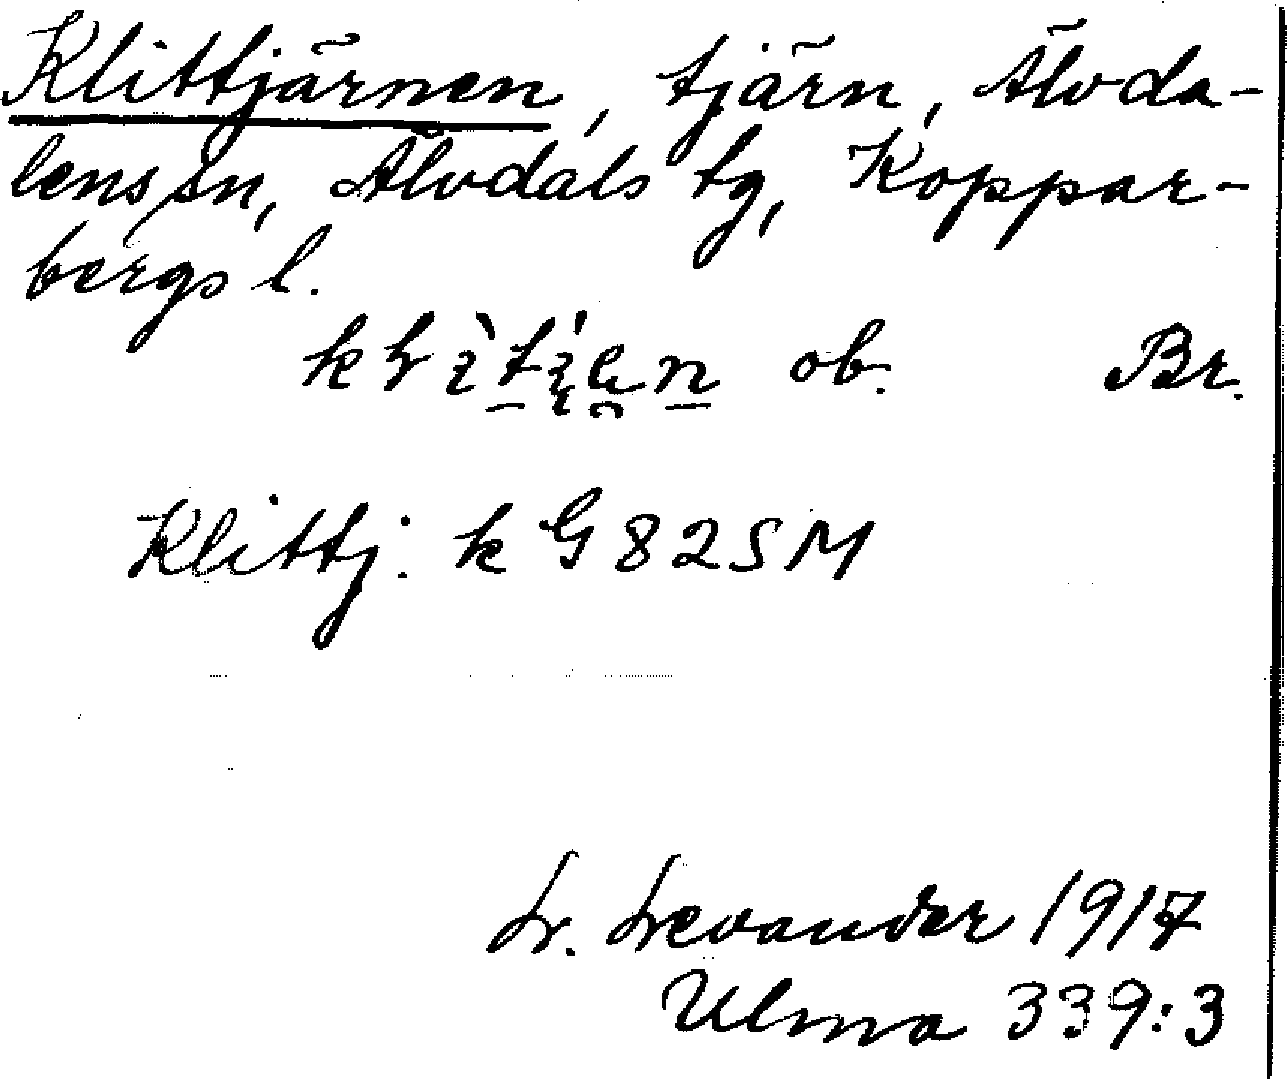 Klittjärnen, tjärn, Älvda-
lens sn, Älvdals tg, Koppar-
bergs l.
ob. Br.
Klittj: k G 82 S M
L. Levander 1917
Ulma 339:3